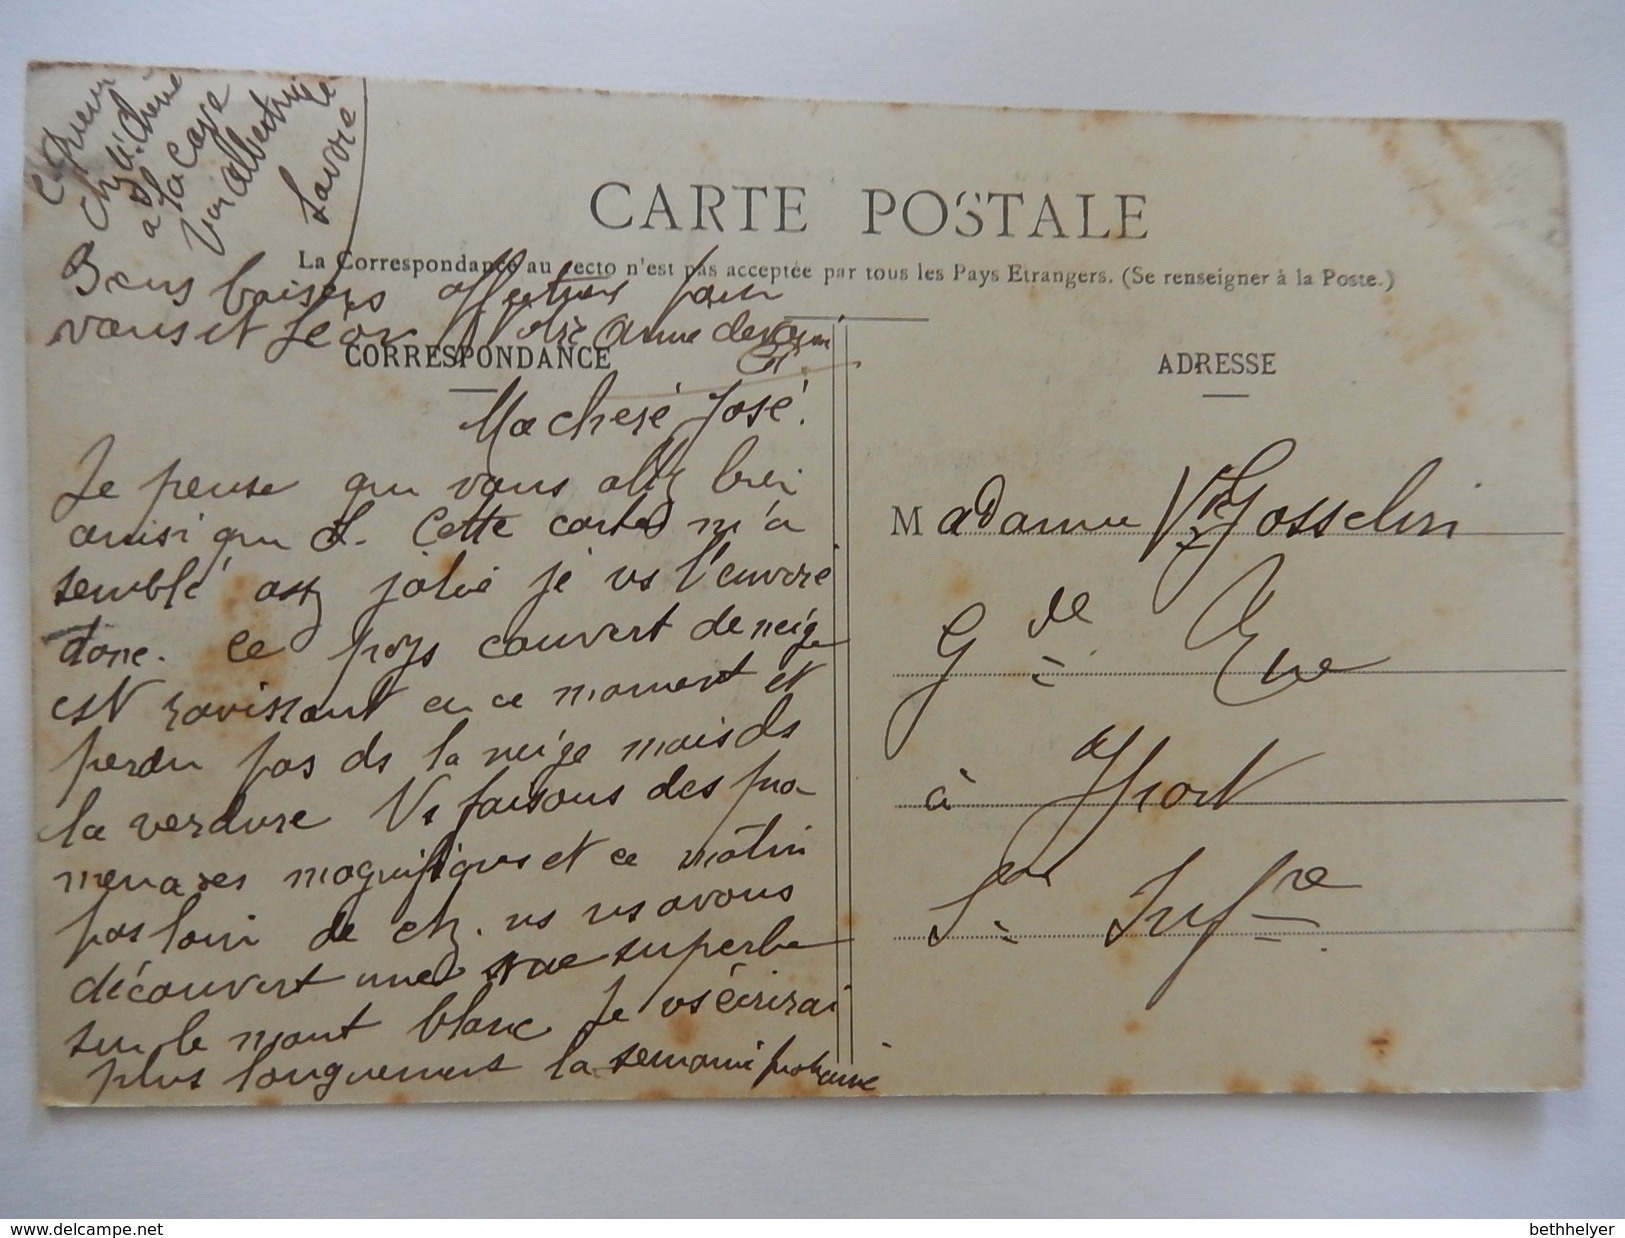 à la Caye
Albertville
Savoie
CARTE POSTALE
La Correspondance au recto n'est pas acceptée par tous les Pays Etrangers. (Se renseigner à la Poste.)
Bons baisers affectueux pour
vous et Léon Votre amie
CORRESPONDANCE
ADRESSE
Ma cheré José!
Je pense que vous allez bien
ainsi que L. Cette carte m'a
semblé assez jolie je vs l'envoie
donc. Ce pays couvert de neige
est ravissant en ce moment et
perdu pas ds la neige mais ds
la verdure Ns faisons des pro
menades magnifiques et ce matin
pas loin de chz. ns ns avons
découvert une vue superbe
sur le mont blanc Je vs écrirai
plus longuement la semaine prochaine
Madame Vve Gosselin
Gde Rue
à Yport
Sne Infre
delcampe.net
bethhelyer